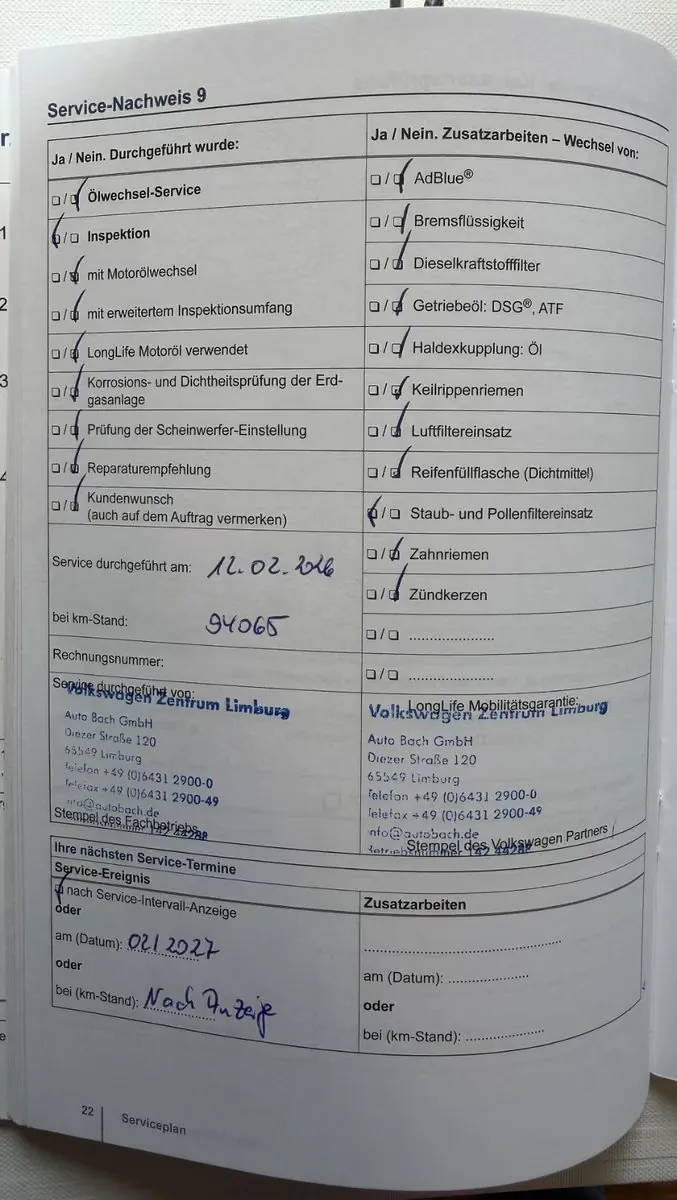 Service-Nachweis 9
Ja / Nein. Durchgeführt wurde:
❏ / ❏ Ölwechsel-Service
❏ / ❏ Inspektion
❏ / ❏ mit Motorölwechsel
❏ / ❏ mit erweitertem Inspektionsumfang
❏ / ❏ LongLife Motoröl verwendet
❏ / ❏ Korrosions- und Dichtheitsprüfung der Erd-
gasanlage
❏ / ❏ Prüfung der Scheinwerfer-Einstellung
❏ / ❏ Reparaturempfehlung
❏ / ❏ Kundenwunsch
(auch auf dem Auftrag vermerken)
Service durchgeführt am: 12.02.2026
bei km-Stand: 94065
Rechnungsnummer:
Service durchgeführt von:
Volkswagen Zentrum Limburg
Auto Bach GmbH
Diezer Straße 120
65549 Limburg
Telefon +49 (0)6431 2900-0
Telefax +49 (0)6431 2900-49
info@autobach.de
Stempel des Fachbetriebs
Ja / Nein. Zusatzarbeiten – Wechsel von:
❏ / ❏ AdBlue®
❏ / ❏ Bremsflüssigkeit
❏ / ❏ Dieselkraftstofffilter
❏ / ❏ Getriebeöl: DSG®, ATF
❏ / ❏ Haldexkupplung: Öl
❏ / ❏ Keilrippenriemen
❏ / ❏ Luftfiltereinsatz
❏ / ❏ Reifenfüllflasche (Dichtmittel)
❏ / ❏ Staub- und Pollenfiltereinsatz
❏ / ❏ Zahnriemen
❏ / ❏ Zündkerzen
❏ / ❏ .....................
❏ / ❏ .....................
LongLife Mobilitätsgarantie:
Volkswagen Zentrum Limburg
Auto Bach GmbH
Diezer Straße 120
65549 Limburg
Telefon +49 (0)6431 2900-0
Telefax +49 (0)6431 2900-49
info@autobach.de
Betriebsnummer
Stempel des Volkswagen Partners
Ihre nächsten Service-Termine
Service-Ereignis
❏ nach Service-Intervall-Anzeige
oder
am (Datum): 02/2027
oder
bei (km-Stand): Nach Anzeige
Zusatzarbeiten
am (Datum): ....................
oder
bei (km-Stand): ....................
22
Serviceplan